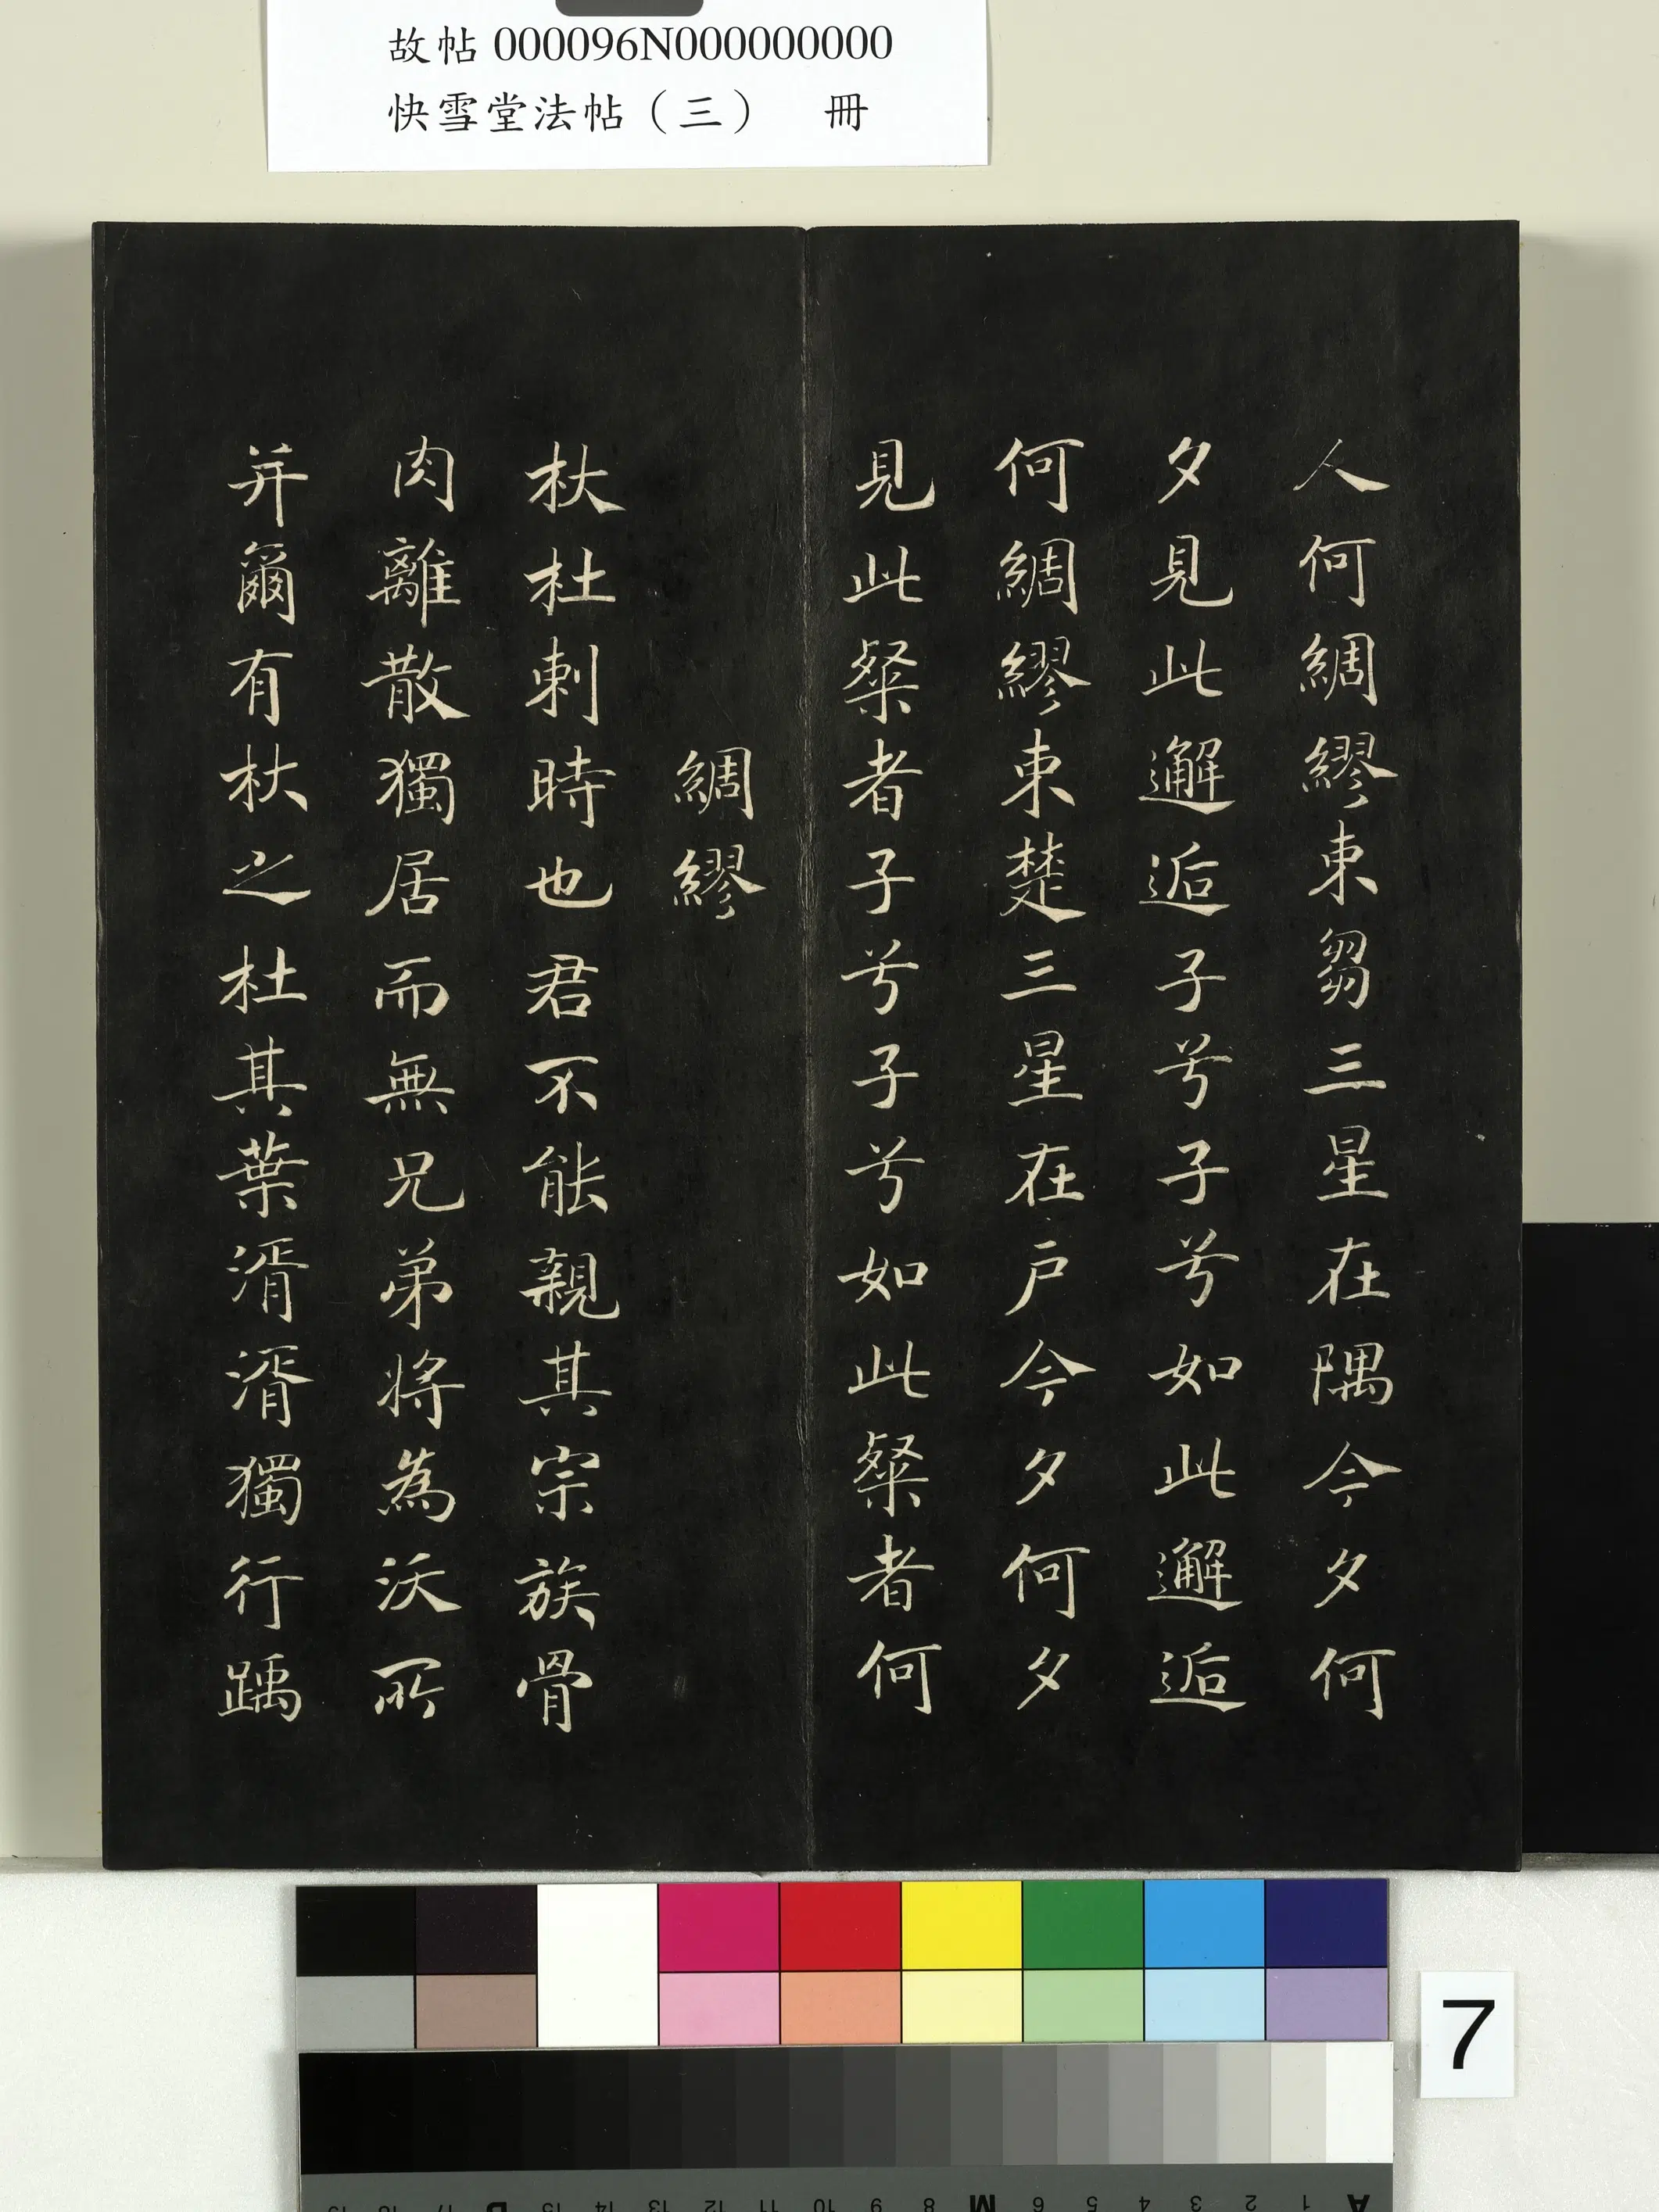 故帖 000096N000000000
快雪堂法帖（三）　冊
人何綢繆束芻三星在隅今夕何
夕見此邂逅子兮子兮如此邂逅
何綢繆束楚三星在戶今夕何夕
見此粲者子兮子兮如此粲者何
綢繆
杕杜刺時也君不能親其宗族骨
肉離散獨居而無兄弟將為沃所
并爾有杕之杜其葉湑湑獨行踽
7
A 1 2 3 4 5 6 M 8 9 10 11 12 13 14 15 B 17 18 19